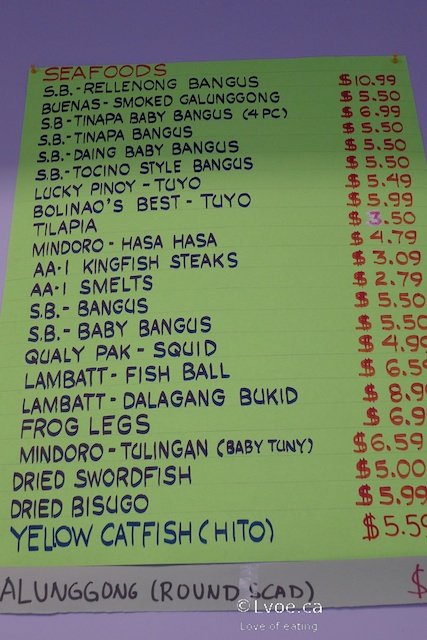 SEAFOODS
S.B.-RELLENONG BANGUS $10.99
BUENAS-SMOKED GALUNGGONG $5.50
S.B-TINAPA BABY BANGUS (4PC) $6.99
S.B.-TINAPA BANGUS $5.50
S.B.-DAING BABY BANGUS $5.50
S.B.-TOCINO STYLE BANGUS $5.50
LUCKY PINOY - TUYO $5.49
BOLINAO'S BEST - TUYO $5.99
TILAPIA $3.50
MINDORO - HASA HASA $4.79
AA-1 KINGFISH STEAKS $3.09
AA-1 SMELTS $2.79
S.B.- BANGUS $5.50
S.B.- BABY BANGUS $5.50
QUALY PAK - SQUID $4.99
LAMBATT- FISH BALL $6.5
LAMBATT- DALAGANG BUKID $8.9
FROG LEGS $6.9
MINDORO - TULINGAN (BABY TUNY) $6.59
DRIED SWORDFISH $5.00
DRIED BISUGO $5.99
YELLOW CATFISH (HITO) $5.59
ALUNGGONG (ROUND SCAD) $
©Lvoe.ca
Love of eating